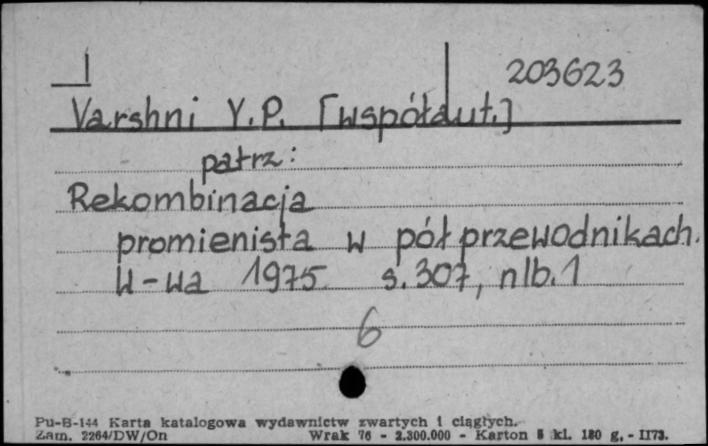 I 203623
Varshni Y.P. [współaut.]
patrz:
Rekombinacja
promienista w półprzewodnikach.
W-wa 1975 s. 307, nlb. 1
6
Pu-B-144 Karta katalogowa wydawnictw zwartych i ciągłych.
Zam. 2264/DW/On Wrak 76 - 2.300.000 - Karton kl. 180 g. - II73.